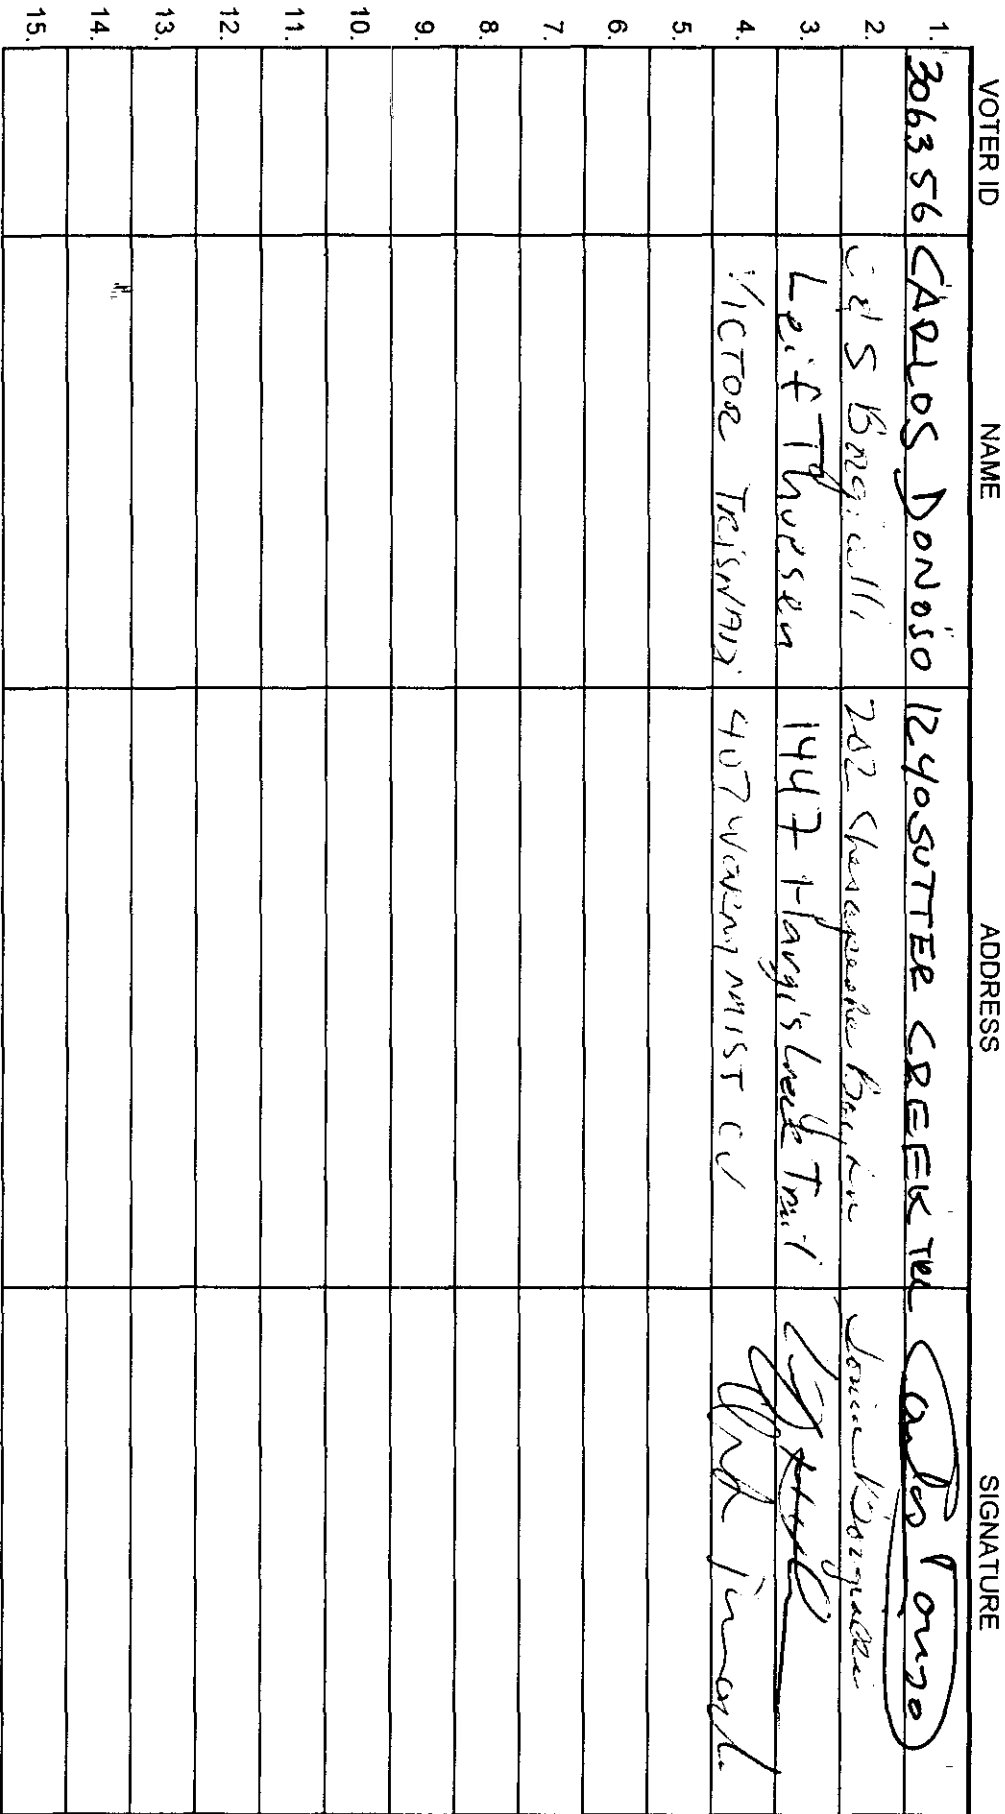 VOTER ID NAME ADDRESS SIGNATURE
1. 306356 CARLOS DONOSO 1240 SUTTER CREEK TRL Carlos Donoso
2. S 202 Chesapeake Bay Ln
3. Leif Thuesen 1447 Hargis Creek Trail
4. VICTOR 407 MORNING MIST CV
5.
6.
7.
8.
9.
10.
11.
12.
13.
14.
15.